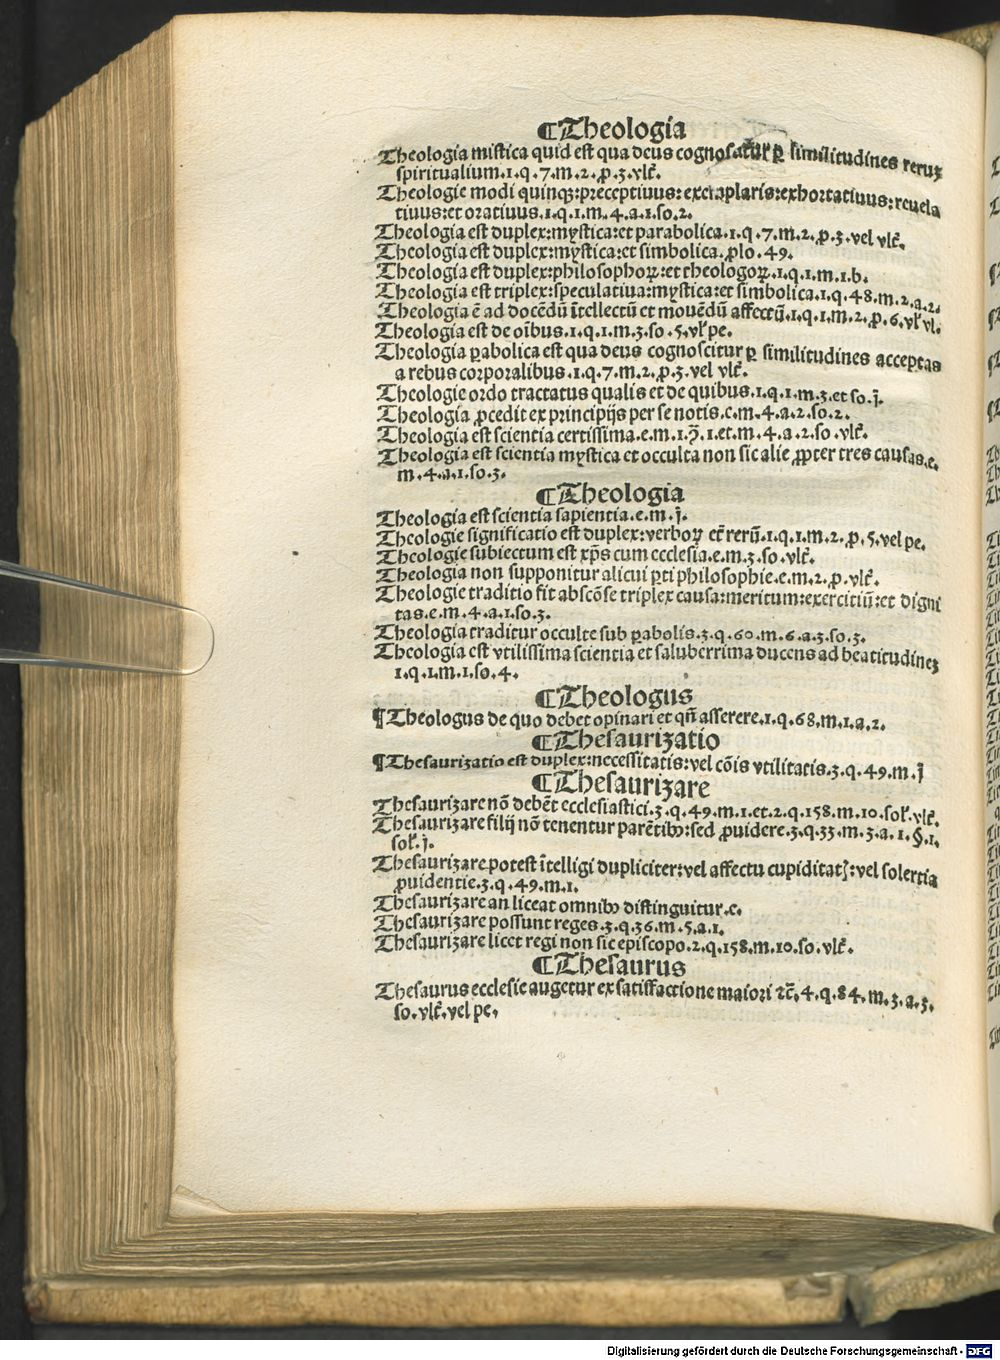 ¶Theologia
Theologia mistica quid est qua deus cognoscatur ꝑ similitudines reruꝫ
spiritualium.1.q.7.m.2.ꝓ.3.vlt̄.
Theologie modi quinqꝫ:preceptiuus:exemplaris:exhortatiuus:reuela
tiuus:et oratiuus.1.q.1.m.4.a.1.so.2.
Theologia est duplex:mystica:et parabolica.1.q.7.m.2.ꝓ.3.vel vlt̄.
Theologia est duplex:mystica:et simbolica.ꝓlo.49.
Theologia est duplex:philosophoꝝ:et theologoꝝ.1.q.1.m.1.b.
Theologia est triplex:speculatiua:mystica:et simbolica.1.q.48.m.2.a.2.
Theologia ē ad docēdū ītellectū et mouēdū affectū.1.q.1.m.2.ꝓ.6.vl̓ vl.
Theologia est de oībus.1.q.1.m.3.so.5.vl̓ pe.
Theologia ꝑabolica est qua deus cognoscitur ꝑ similitudines acceptas
a rebus corporalibus.1.q.7.m.2.ꝓ.3.vel vlt̄.
Theologie ordo tractatus qualis et de quibus.1.q.1.m.3.et so.j.
Theologia ꝓcedit ex principijs per se notis.e.m.4.a.2.so.2.
Theologia est scientia certissima.e.m.1.ꝓ̄.1.et.m.4.a.2.so.vlt̄.
Theologia est scientia mystica et occulta non sic alie ꝓpter tres causas.e.
m.4.a.1.so.3.
¶Theologia
Theologia est scientia sapientia.e.m.j.
Theologie significatio est duplex:verboꝝ et̄ rerū.1.q.1.m.2.ꝓ.5.vel pe.
Theologie subiectum est xp̄s cum ecclesia.e.m.3.so.vlt̄.
Theologia non supponitur alicui ꝑti philosophie.e.m.2.ꝓ.vlt̄.
Theologie traditio fit abscōse triplex causa:meritum:exercitiū:et digni
tas.e.m.4.a.1.so.3.
Theologia traditur occulte sub ꝑabolis.3.q.60.m.6.a.3.so.3.
Theologia est vtilissima scientia et saluberrima ducens ad beatitudineꝫ
1.q.1.m.1.so.4.
¶Theologus
¶Theologus de quo debet opinari et qn̄ asserere.1.q.68.m.1.a.2.
¶Thesaurizatio
¶Thesaurizatio est duplex:necessitatis:vel cōis vtilitatis.3.q.49.m.j
¶Thesaurizare
Thesaurizare nō debēt ecclesiastici.3.q.49.m.1.et.2.q.158.m.10.sol̓.vlt̄.
Thesaurizare filij nō tenentur parētibꝰ:sed ꝓuidere.3.q.33.m.3.a.1.§.1.
sol̓.j.
Thesaurizare potest ītelligi dupliciter:vel affectu cupiditatꝭ:vel solertia
ꝓuidentie.3.q.49.m.1.
Thesaurizare an liceat omnibꝰ distinguitur.e.
Thesaurizare possunt reges.3.q.36.m.5.a.1.
Thesaurizare licet regi non sic episcopo.2.q.158.m.10.so.vlt̄.
¶Thesaurus
Thesaurus ecclesie augetur ex satisfactione maiori ⁊c̄.4.q.84.m.3.a.3.
so.vlt̄.vel pe.
Digitalisierung gefördert durch die Deutsche Forschungsgemeinschaft - DFG